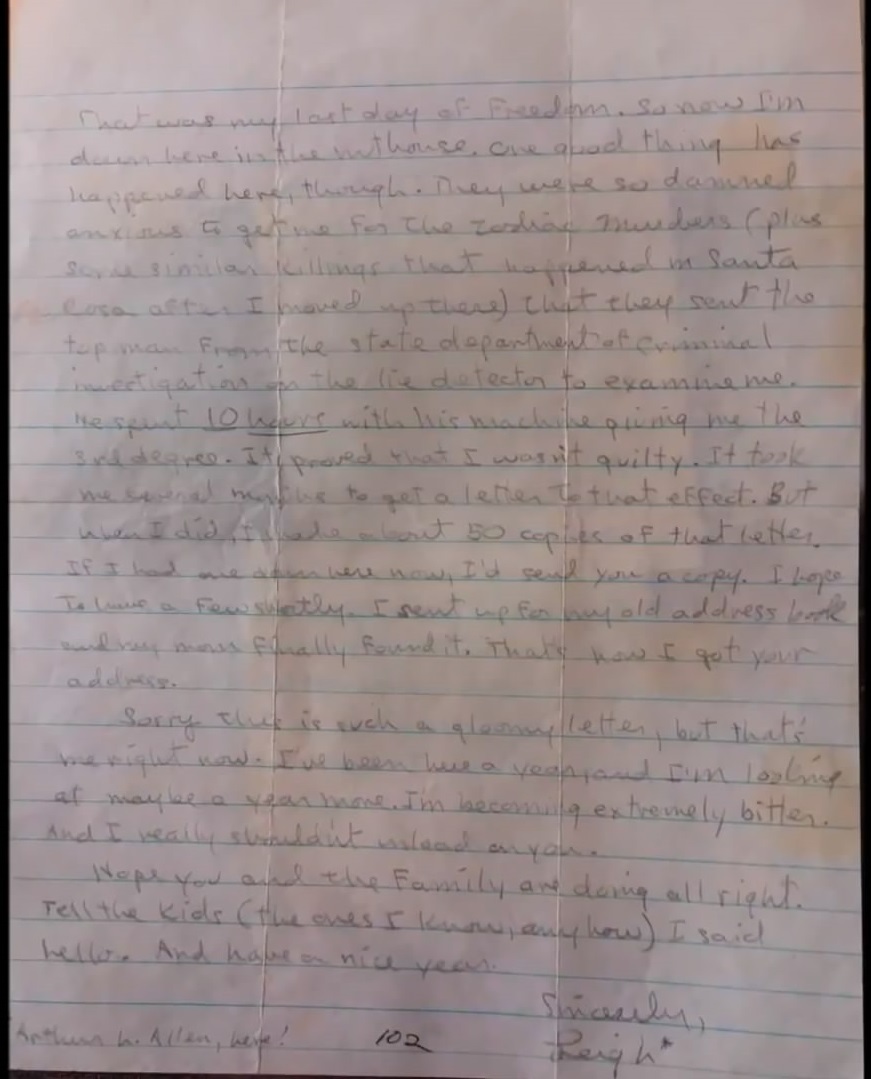 That was my last day of Freedom. So now I'm
down here in the nuthouse. One good thing has
happened here, though. They were so damned
anxious to get me for the Zodiac murders (plus
some similar killings that happened in Santa
Rosa after I moved up there) that they sent the
top man from the state department of criminal
investigation on the lie detector to examine me.
He spent 10 hours with his machine giving me the
3rd degree. It proved that I wasn't guilty. It took
me several months to get a letter to that effect. But
when I did, I made about 50 copies of that letter.
If I had one down here now, I'd send you a copy. I hope
To have a few shortly. I sent up for my old address book
and my mom finally found it. That's how I got your
address.
Sorry this is such a gloomy letter, but that's
me right now. I've been here a year, and I'm looking
at maybe a year more. I'm becoming extremely bitter.
And I really shouldn't unload on you.
Hope you and the Family are doing all right.
Tell the kids (the ones I know, anyhow) I said
hello. And have a nice year.
Sincerely,
Leigh*
Arthur L. Allen, here!
102